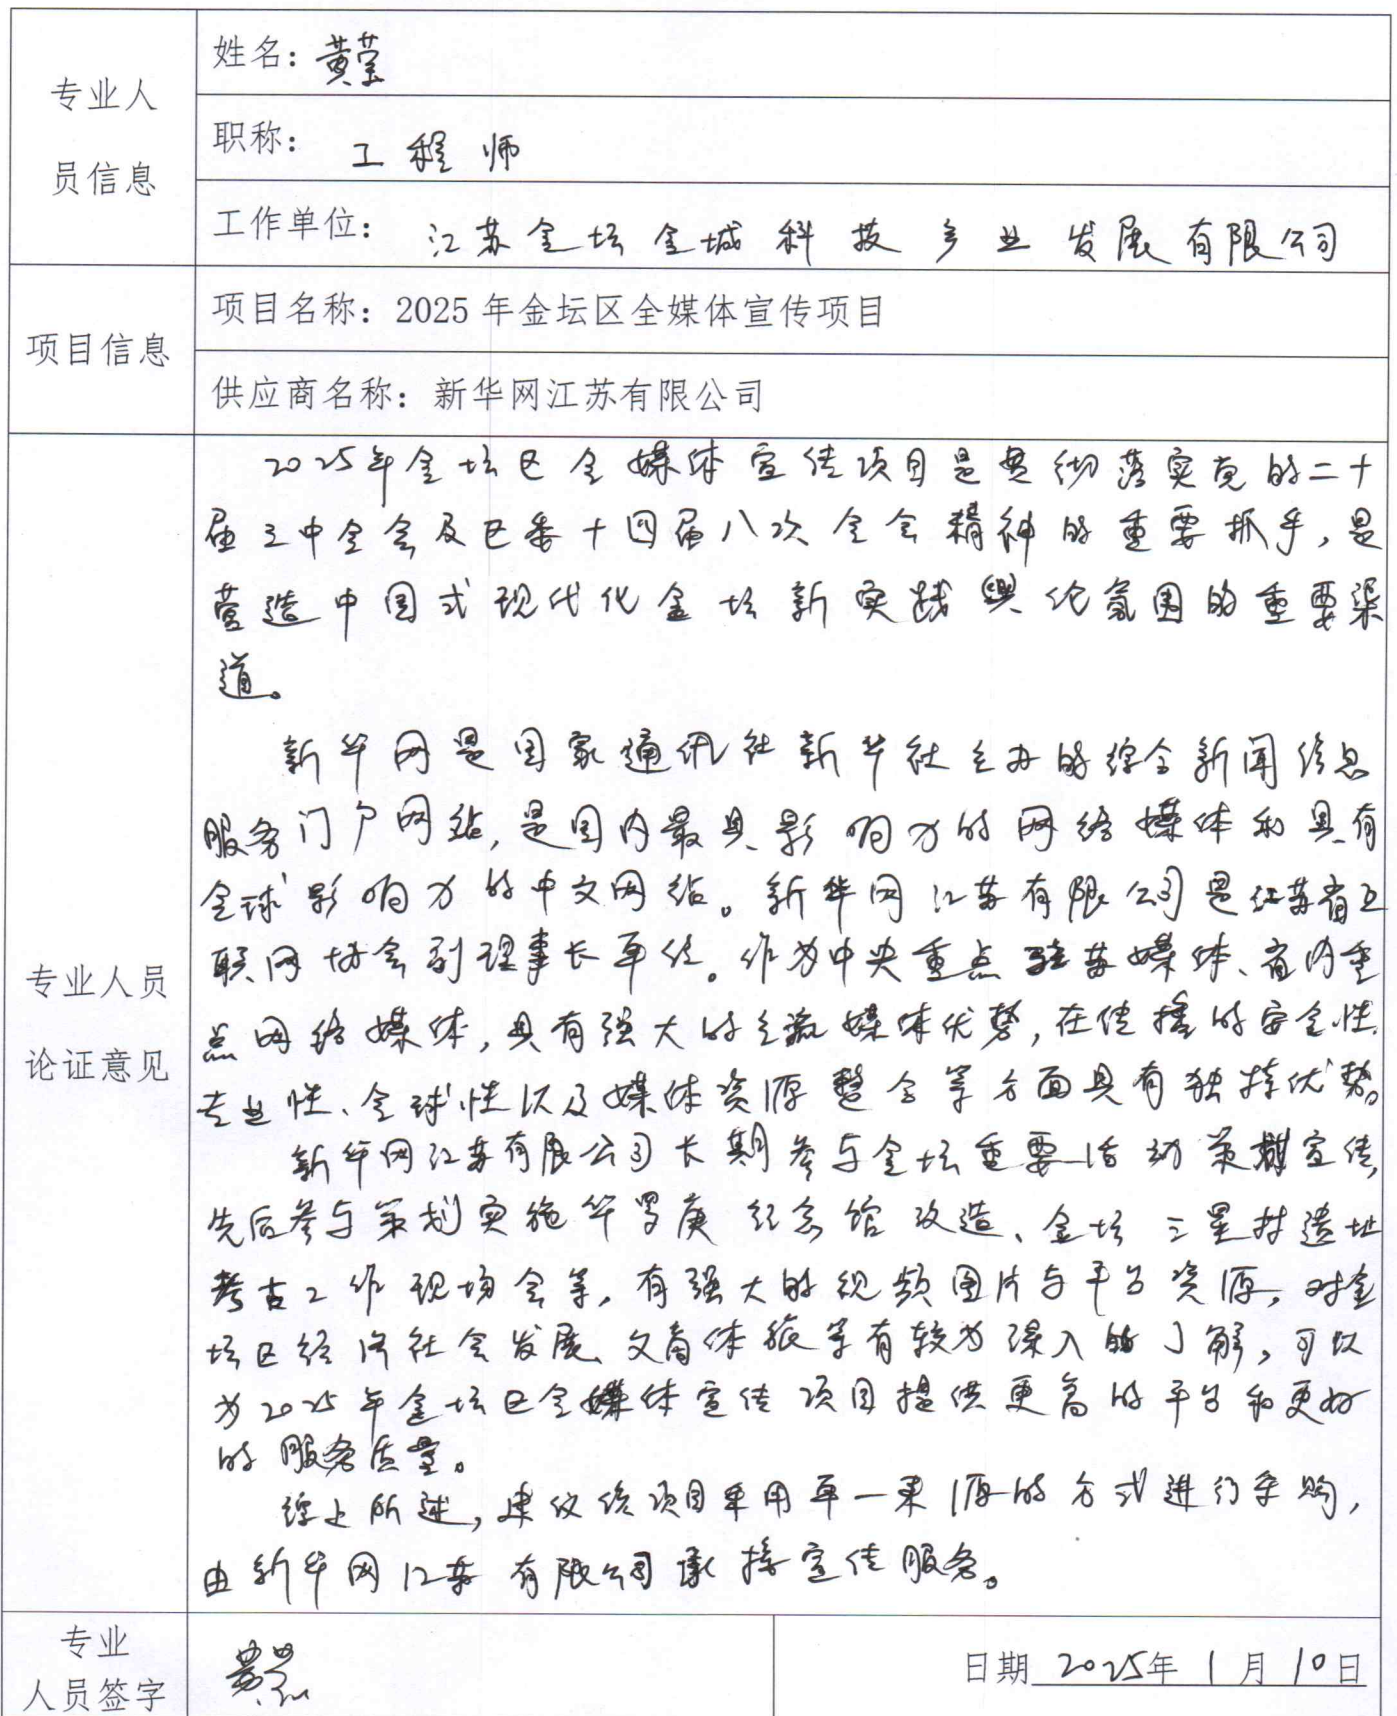 专业人
员信息
姓名：黄莹
职称：工程师
工作单位：江苏金坛金城科技产业发展有限公司
项目信息
项目名称：2025年金坛区全媒体宣传项目
供应商名称：新华网江苏有限公司
专业人员
论证意见
2025年金坛区全媒体宣传项目是贯彻落实党的二十
届三中全会及区委十四届八次全会精神的重要抓手，是
营造中国式现代化金坛新实践舆论氛围的重要渠
道。
新华网是国家通讯社新华社主办的综合新闻信息
服务门户网站，是国内最具影响力的网络媒体和具有
全球影响力的中文网站。新华网江苏有限公司是江苏省互
联网协会副理事长单位。作为中央重点驻苏媒体、省内重
点网络媒体，具有强大的主流媒体优势，在传播的安全性、
专业性、全球性以及媒体资源整合等方面具有独特优势。
新华网江苏有限公司长期参与金坛重要活动策划宣传，
先后参与策划实施华罗庚纪念馆改造、金坛三星村遗址
考古工作现场会等，有强大的视频图片与平台资源，对金
坛区经济社会发展、文商体旅等有较为深入的了解，可以
为2025年金坛区全媒体宣传项目提供更高的平台和更好
的服务质量。
综上所述，建议该项目采用单一来源的方式进行采购，
由新华网江苏有限公司承接宣传服务。
专业
人员签字
黄莹
日期 2025年1月10日